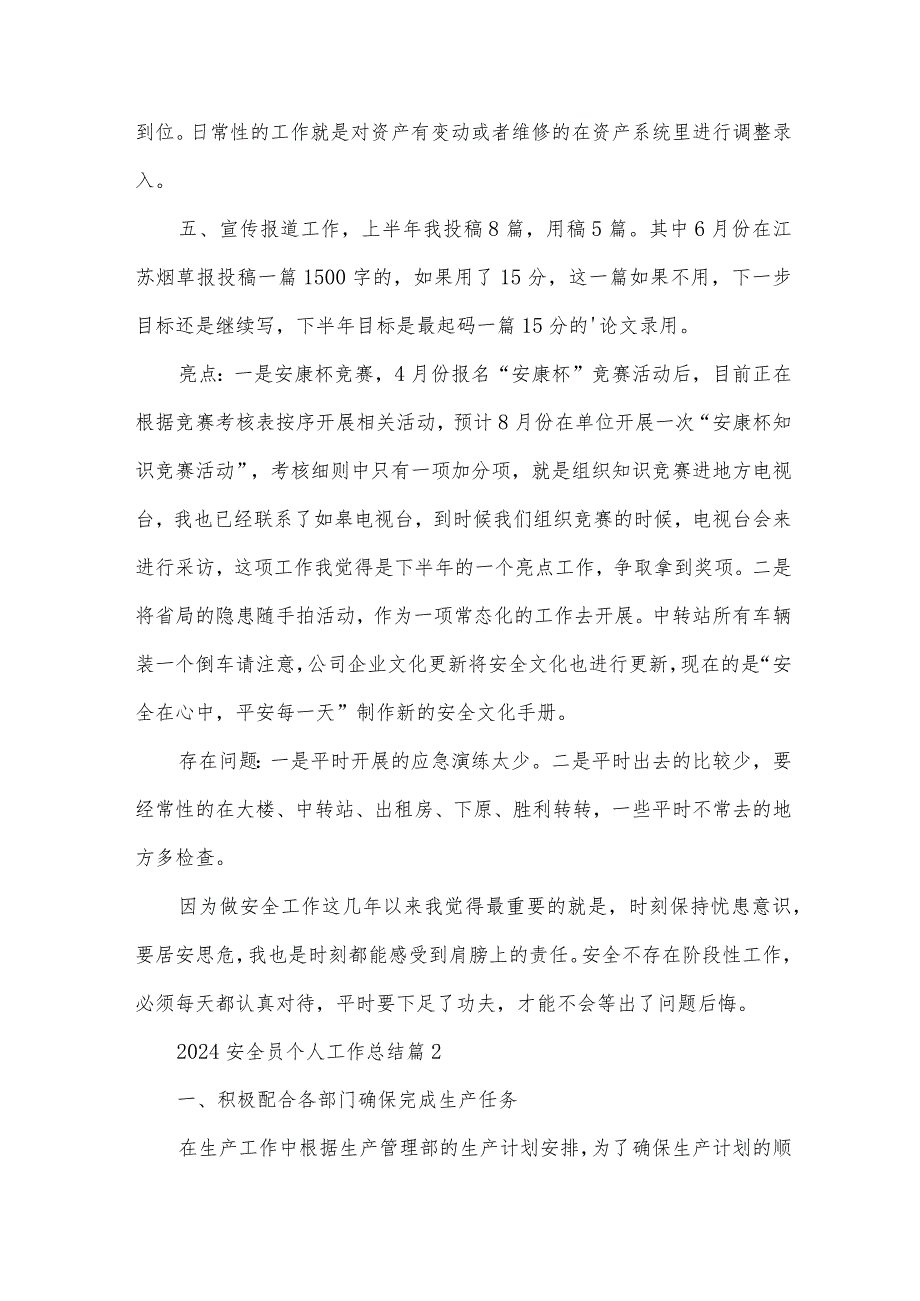 到位。日常性的工作就是对资产有变动或者维修的在资产系统里进行调整录
入。
五、宣传报道工作，上半年我投稿8篇，用稿5篇。其中6月份在江
苏烟草报投稿一篇1500字的，如果用了15分，这一篇如果不用，下一步
目标还是继续写，下半年目标是最起码一篇15分的'论文录用。
亮点：一是安康杯竞赛，4月份报名“安康杯”竞赛活动后，目前正在
根据竞赛考核表按序开展相关活动，预计8月份在单位开展一次“安康杯知
识竞赛活动”，考核细则中只有一项加分项，就是组织知识竞赛进地方电视
台，我也已经联系了如皋电视台，到时候我们组织竞赛的时候，电视台会来
进行采访，这项工作我觉得是下半年的一个亮点工作，争取拿到奖项。二是
将省局的隐患随手拍活动，作为一项常态化的工作去开展。中转站所有车辆
装一个倒车请注意，公司企业文化更新将安全文化也进行更新，现在的是“安
全在心中，平安每一天”制作新的安全文化手册。
存在问题：一是平时开展的应急演练太少。二是平时出去的比较少，要
经常性的在大楼、中转站、出租房、下原、胜利转转，一些平时不常去的地
方多检查。
因为做安全工作这几年以来我觉得最重要的就是，时刻保持忧患意识，
要居安思危，我也是时刻都能感受到肩膀上的责任。安全不存在阶段性工作，
必须每天都认真对待，平时要下足了功夫，才能不会等出了问题后悔。
2024安全员个人工作总结篇2
一、积极配合各部门确保完成生产任务
在生产工作中根据生产管理部的生产计划安排，为了确保生产计划的顺